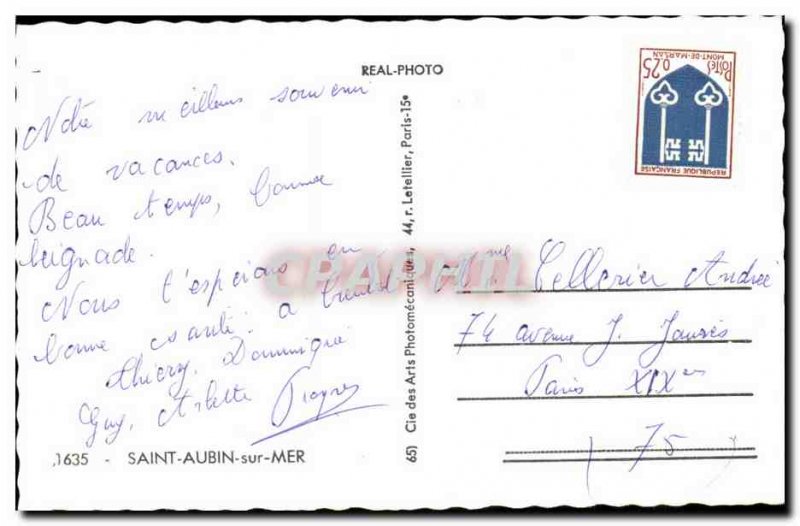 REAL-PHOTO
Notre meilleurs souvenir
de vacances.
Beau temps, bonne
beignade.
Nous t'espérons en
bonne santé. a bientôt
Thierry, Dominique
Guy, Arlette
1635 - SAINT-AUBIN-sur-MER
65) Cie des Arts Photomécaniques, 44, r. Letellier, Paris-15e
CPAPHIL
Postes 0,25
MONT-DE-MARSAN
REPUBLIQUE FRANÇAISE
Mme Cellerier Andrée
74 avenue J. Jaurès
Paris XIXes
75